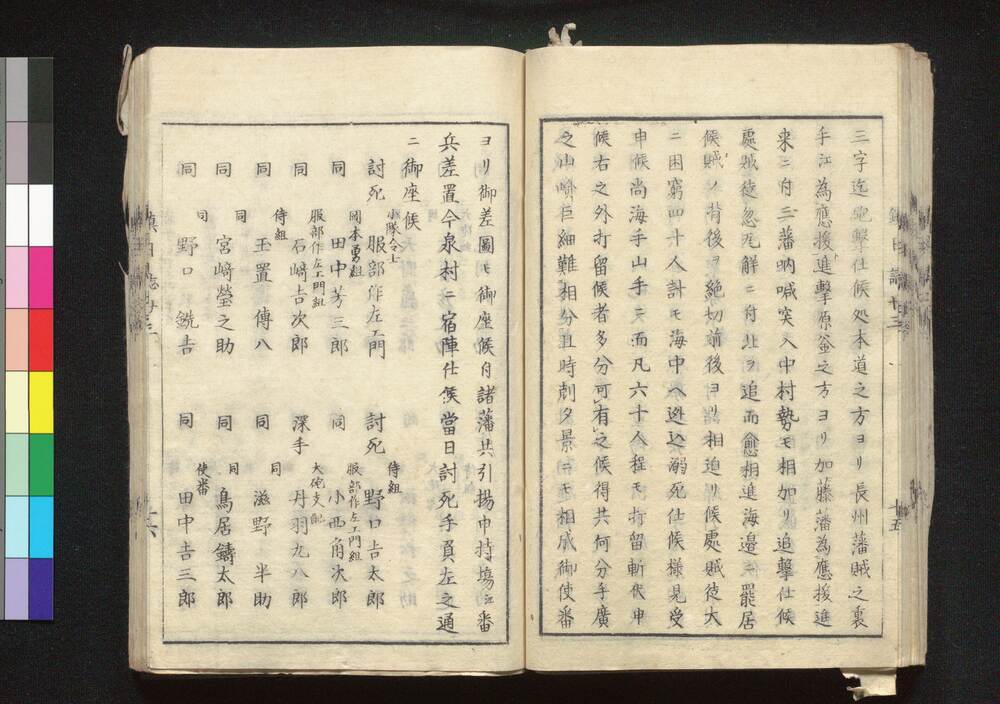 三字迄砲撃仕候処本道之方ヨリ長州藩賊之裏
手江為應援進撃原釜之方ヨリ加藤藩為應援進
来ニ付三藩吶喊突入中村勢モ相加リ追撃仕候
處賊徒忽瓦解ニ付北ヲ追而愈相進海邉ニ罷居
候賊ノ背後ヲ絶切前後ヨリ相迫リ候處賊徒大
ニ困窮四十人計モ海中へ迯込溺死仕候様見受
申候尚海手山手ニ而凡六十人程モ打留斬伏申
候右之外打留候者多分可有之候得共何分手廣
之山崎巨細難相分且時刻夕景ニモ相成御使番
十五
ヨリ御差圖モ御座候ニ付諸藩共引揚中持場江番
兵差置今泉村ニ宿陣仕候當日討死手負左之通
ニ御座候
小隊令士
討死 服部作左エ門
侍組
討死 野口吉太郎
岡本勇組
同 田中芳三郎
服部作左エ門組
同 小西角次郎
服部作左エ門組
同 石﨑吉次郎
大砲支配
深手 丹羽九八郎
侍組
同 玉置傳八
同
同 滋野半助
同
同 宮﨑瑩之助
同
同 鳥居鑄太郎
同
同 野口銑吉
使番
同 田中吉三郎
十六